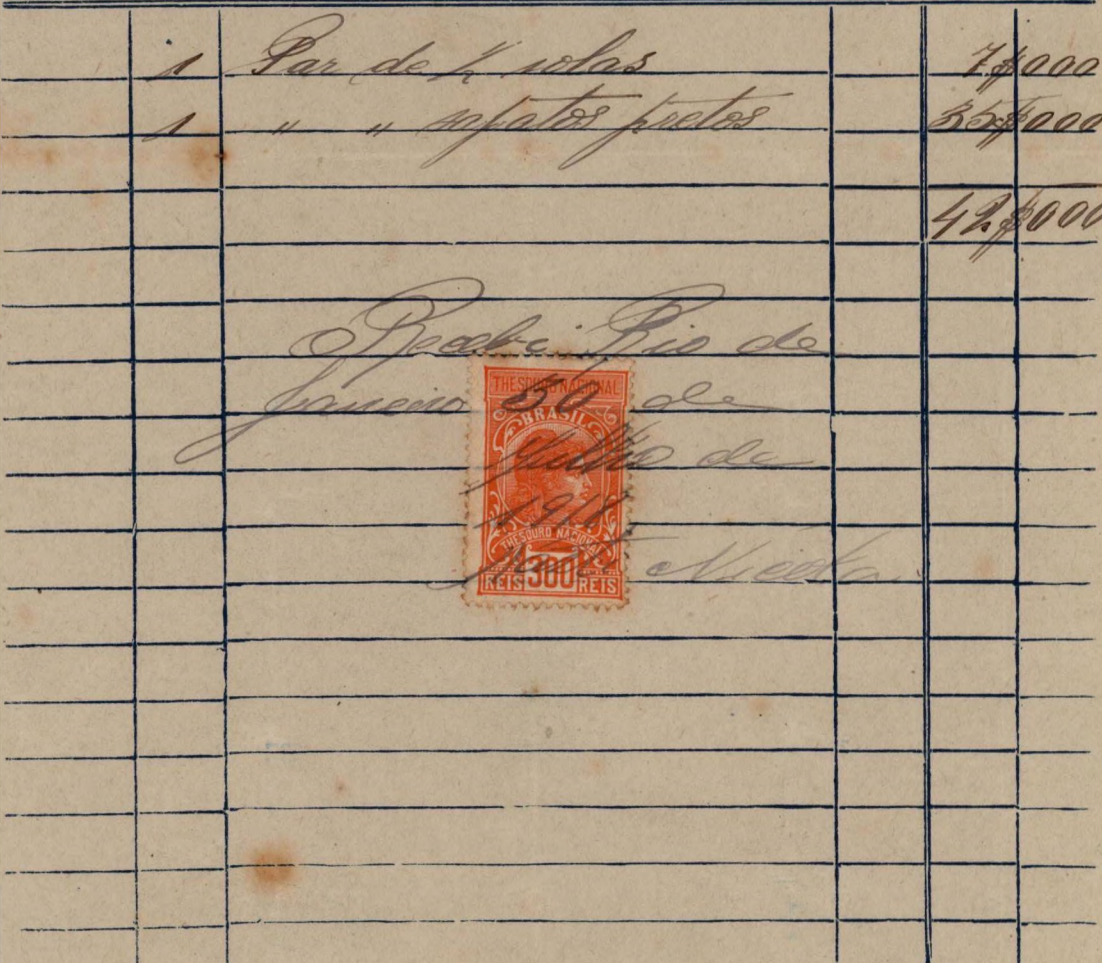 1 Par de ½ solas 7$000
1 " " sapatos pretos 35$000
42$000
Recebi Rio de
Janeiro 30 de
Julho de
1918
THESOURO NACIONAL
BRASIL
THESOURO NACIONAL
REIS 300 REIS